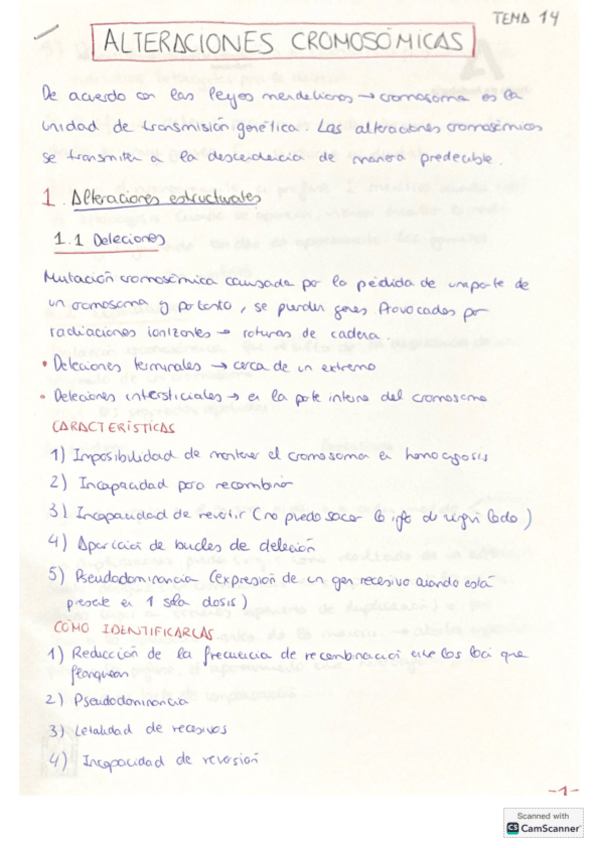 TEMA 14
ALTERACIONES CROMOSÓMICAS
De acuerdo con las leyes mendelianas → cromosoma es la
unidad de transmisión genética. Las alteraciones cromosómicas
se transmiten a la descendencia de manera predecible.
1. Alteraciones estructurales
1.1 Deleciones
Mutación cromosómica causada por la pérdida de una parte de
un cromosoma y por tanto, se pierden genes. Provocados por
radiaciones ionizantes → roturas de cadena.
• Deleciones terminales → cerca de un extremo
• Deleciones intersticiales → en la parte interna del cromosoma
CARACTERÍSTICAS
1) Imposibilidad de mantener el cromosoma en homocigosis
2) Incapacidad para recombinar
3) Incapacidad de revertir (no puedo sacar la info de ningún lado)
4) Aparición de bucles de deleción
5) Pseudodominancia (expresión de un gen recesivo cuando está
presente en 1 sola dosis)
COMO IDENTIFICARLAS
1) Reducción de la frecuencia de recombinación entre los loci que
flanquean
2) Pseudodominancia
3) Letalidad de recesivos
4) Incapacidad de reversión
-1-
Scanned with
CS CamScanner